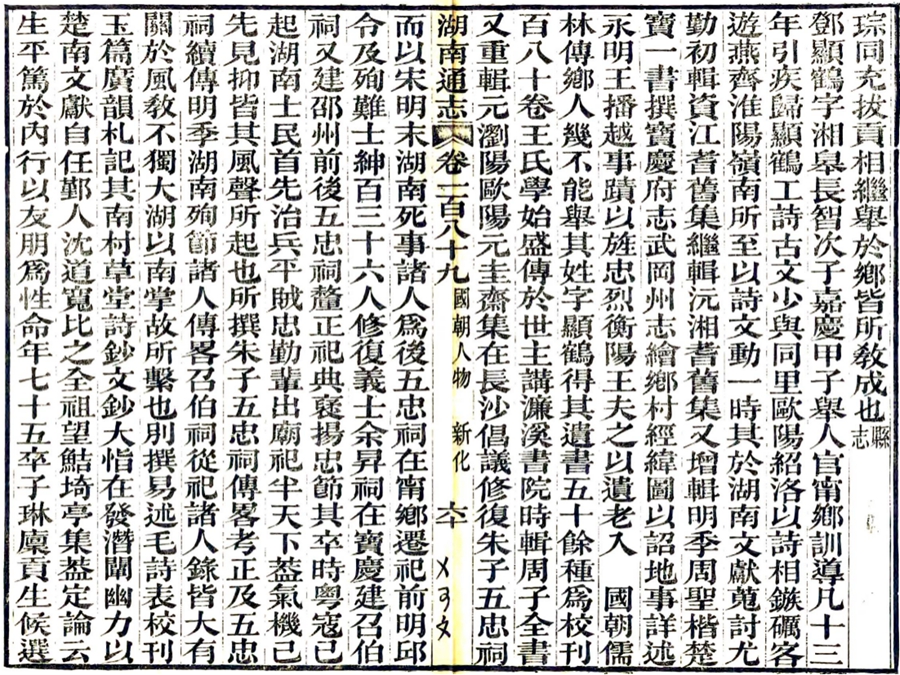 琮同充拔貢相繼舉於鄉皆所敎成也縣志
鄧顯鶴字湘皋長智次子嘉慶甲子舉人官甯鄉訓導凡十三
年引疾歸顯鶴工詩古文少與同里歐陽紹洛以詩相鏃礪客
遊燕齊淮陽嶺南所至以詩文動一時其於湖南文獻蒐討尤
勤初輯資江耆舊集繼輯沅湘耆舊集又增輯明季周聖楷楚
寶一書撰寶慶府志武岡州志繪鄉村經緯圖以詔地事詳述
永明王播越事蹟以旌忠烈衡陽王夫之以遺老入 國朝儒
林傳鄉人幾不能舉其姓字顯鶴得其遺書五十餘種爲校刊
百八十卷王氏學始盛傳於世主講濂溪書院時輯周子全書
又重輯元瀏陽歐陽元圭齋集在長沙倡議修復朱子五忠祠
湖南通志 卷二百八十九 國朝人物 新化 六十
而以宋明末湖南死事諸人爲後五忠祠在甯鄉遷祀前明邱
令及殉難士紳百三十六人修復義士余昇祠在寶慶建召伯
祠又建邵州前後五忠祠釐正祀典襃揚忠節其卒時粵寇已
起湖南士民首先治兵平賊忠勤輩出廟祀半天下葢氣機已
先見抑皆其風聲所起也所撰朱子五忠祠傳畧考正及五忠
祠續傳明季湖南殉節諸人傳畧召伯祠從祀諸人錄皆大有
關於風敎不獨大湖以南掌故所繫也別撰易述毛詩表校刊
玉篇廣韻札記其南村草堂詩鈔文鈔大恉在發潛闡幽力以
楚南文獻自任鄞人沈道寬比之全祖望鮚埼亭集葢定論云
生平篤於內行以友朋爲性命年七十五卒子琳廩貢生候選